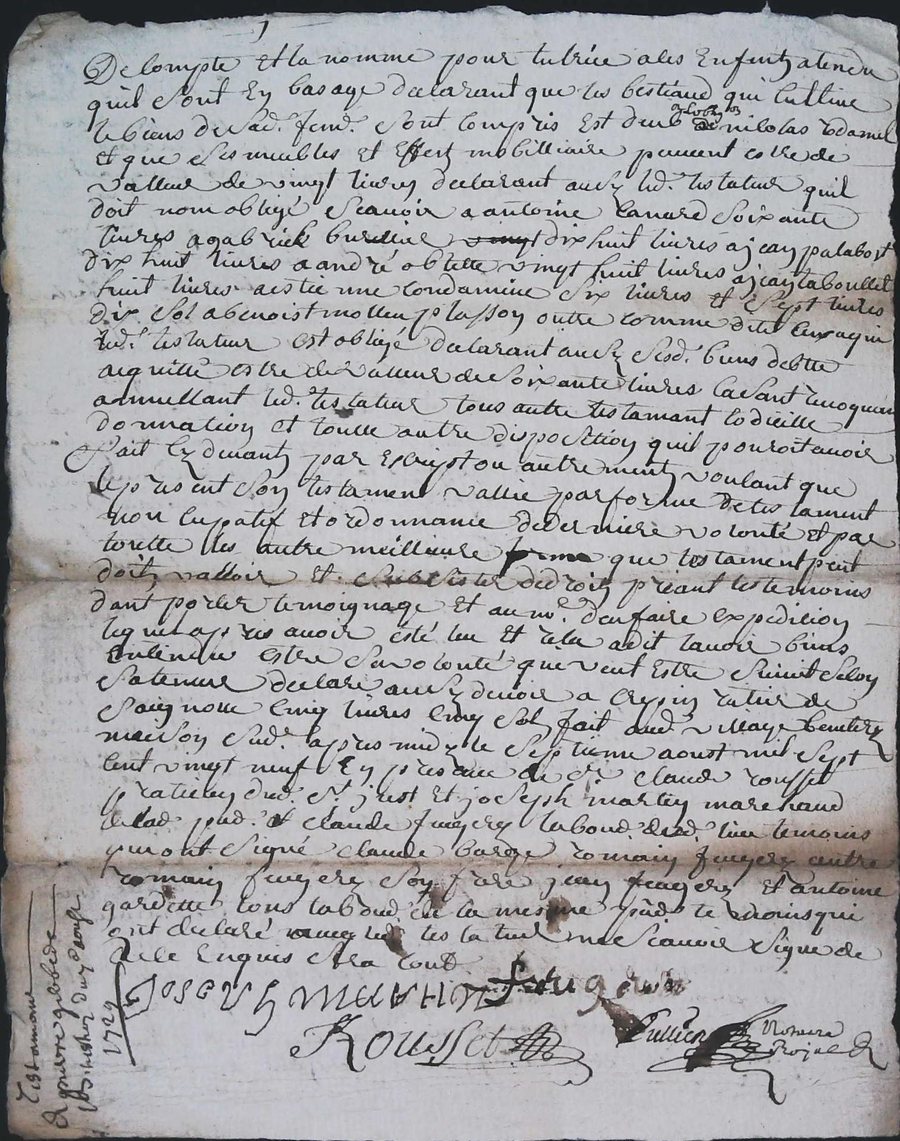 De compte et la nomme pour tutrice a ses Enfentz atendu
quil sont En bas age declarant que les bestiaud qui Cultive
le biens de Sad. femd. sont compris est deub nicolas
et que Ses meubles et Effect mobilliaire peuvent estre de
valleur de vingt livres declarant aussy led. testateur quil
doit non obligé Scavoir a antoine Soixante
livres a gabriel dix huit livres a jean palabost
dix huit livres a andré vingt huit livres a jean taboullet
huit livres a estienne condamine Six livres et Sept livres
dix Sol a benoist plasson outre comme dit
led. testateur est obligé declarant aussy Sesd. biens debte
aquitté estre de valleur de Soixante livres Cassant revoquan
annullant led. testateur tous autre testamant Codicille
donnation et toutte autre disposition quil pouroit avoir
fait Cy devant par Escript ou autrement voulant que
le present Son testament vallie par forme de testament
non Cupatif et ordonnance de derniere volonté et par
toutte les autre meilleure forme que testament peut
doit valloir et Subsister de droit priant les temoins
dant porter temoignage et au nore. den faire expedition
lequel apres avoir esté leu et releu a dit lavoir biens
Entendu estre Sa volonté que veut estre Suivit Selon
Sa teneur declare aussy devoir a crepin de
Cinq livres Cinq Sol fait aud. village
maison Sud. apres midy le Septieme aoust mil Sept
Cent vingt neuf En presence de Sr. claude rousset
praticien dud. St. just et joseph martin marchand
de lad. pad. et claude fugere laboud. dud. lieu temoins
qui ont Signé claude barge romain fugere autre
romain fugere Son frere jean fugere et antoine
gardette tous laboud. de la mesme pad. temoins qui
ont declaré led. testateur ne Scavoir Signe de
ce Enquis Sera Cont.
JOSEPH MARTIN fougere
Rousset
Notaire
Royal
Testamant
de pierre
1729